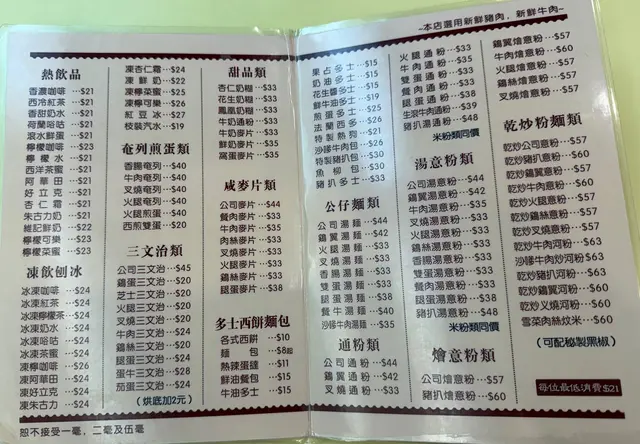 ~本店選用新鮮豬肉，新鮮牛肉~
熱飲品
香濃咖啡···$21
西冷紅茶···$21
香甜奶水···$21
荷蘭咯咕···$21
滾水鮮蛋···$21
檸檬咖啡···$23
檸檬水···$21
西洋菜蜜···$21
阿華田···$21
好立克···$21
杏仁霜···$21
朱古力奶···$21
維記鮮奶···$22
檸檬可樂···$23
檸檬菜蜜···$23
凍飲刨冰
冰凍咖啡···$24
冰凍紅茶···$24
冰凍檸檬茶···$24
冰凍奶水···$24
冰凍咯咕···$24
冰凍菜蜜···$24
凍檸咖啡···$26
凍華田···$24
凍好立克···$24
凍朱古力···$24
凍杏仁霜···$24
凍鮮奶···$22
凍檸菜蜜···$25
凍檸可樂···$26
紅豆冰···$27
枝裝汽水···$19
奄列煎蛋類
香腸奄列···$40
牛肉奄列···$40
叉燒奄列···$40
火腿奄列···$40
火腿煎蛋···$40
西煎雙蛋···$20
三文治類
公司三文治···$45
鷄蛋三文治···$20
芝士三文治···$20
火腿三文治···$20
叉燒三文治···$20
牛肉三文治···$24
鷄絲三文治···$24
腿蛋三文治···$24
蛋牛三文治···$28
茄蛋三文治···$24
(烘底加2元)
甜品類
杏仁奶糊···$33
花生奶糊···$33
鳳凰奶糊···$33
牛奶通粉···$33
牛奶麥片···$33
鮮奶麥片···$35
窩蛋麥片···$35
咸麥片類
公司麥片···$44
餐肉麥片···$33
牛肉麥片···$35
肉絲麥片···$33
叉燒麥片···$33
火腿麥片···$33
鷄絲麥片···$33
腿蛋麥片···$38
多士西餅麵包
各式西餅···$10
麵包···$8起
熱辣蛋撻···$11
鮮油餐包···$15
牛油多士···$15
果占多士···$15
奶油多士···$15
花生醬多士···$15
鮮牛油多士···$19
煎蛋多士···$25
法蘭西多士···$26
特製熱狗···$21
沙嗲牛肉包···$26
特製豬扒包···$30
魚柳包···$30
豬扒多士···$33
公仔麵類
公司湯麵···$44
鷄翼湯麵···$42
牛肉湯麵···$35
叉燒湯麵···$33
香腸湯麵···$33
雙蛋湯麵···$33
火腿湯麵···$33
鷄絲湯麵···$33
餐肉湯麵···$33
腿蛋湯麵···$38
豬扒湯麵···$40
沙嗲牛肉湯麵···$35
通粉類
公司通粉···$44
鷄翼通粉···$42
叉燒通粉···$33
火腿通粉···$33
牛肉通粉···$35
雙蛋通粉···$33
餐肉通粉···$33
腿蛋通粉···$38
生滾牛肉通粉···$39
豬扒湯通粉···$48
米粉類同價
湯意粉類
公司湯意粉···$44
鷄翼湯意粉···$42
牛肉湯意粉···$35
火腿湯意粉···$33
叉燒湯意粉···$33
鷄絲湯意粉···$33
雙蛋湯意粉···$33
餐肉湯意粉···$33
腿蛋湯意粉···$38
豬扒湯意粉···$48
米粉類同價
燴意粉類
公司燴意粉···$57
豬扒燴意粉···$60
鷄翼燴意粉···$57
牛肉燴意粉···$60
火腿燴意粉···$57
鷄絲燴意粉···$57
叉燒燴意粉···$57
乾炒粉麵類
乾炒公司意粉···$57
乾炒豬扒意粉···$60
乾炒鷄翼意粉···$57
乾炒牛肉意粉···$60
乾炒火腿意粉···$57
乾炒鷄絲意粉···$57
乾炒叉燒意粉···$57
乾炒牛肉河粉···$63
沙嗲牛肉河粉···$63
乾炒豬扒河粉···$63
乾炒鷄翼河粉···$60
乾炒叉燒河粉···$60
雪菜肉絲炆米···$60
(可配秘製黑椒)
每位最低消費$21
恕不接受一毫，二毫及伍毫